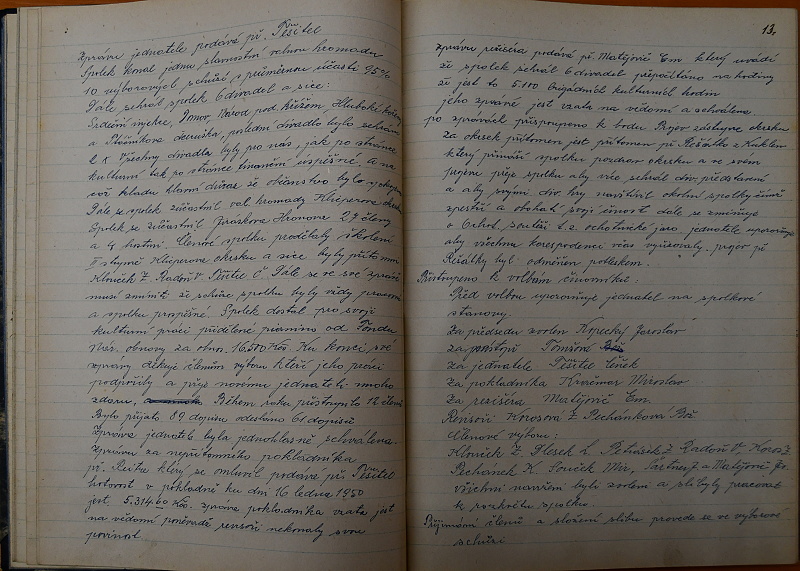 Zprávu jednatele podává př. Těšitel
Spolek konal jednu slavnostní valnou hromadu
10 výborových schůzí s průměrnou účastí 95%
Dále sehrál spolek 6 divadel a sice:
pod křížem
a Pláničkova dceruška, poslední divadlo bylo sehráno
2 x Všechny divadla byly po nás, jak po stránce
kulturní tak po stránce finanční úspěšné, a na
což kladu hlavní důraz že občanstvo bylo
Dále se spolek zúčastnil val. hromady Klicperova okrsku
Spolek se zúčastnil Jiráskova Hronova 29 členy
a 4 hostmi. Členové spolku prodělaly školení
II stupně Klicperova okrsku a sice byly přítomni
Klouček Z. Radoň V. Těšitel Č Dále se ve své zprávě
musí zmíniti že schůze spolku byly vždy pracovní
a spolku prospěšné. Spolek dostal pro svoji
kulturní práci přidělené pianino od Fondu
Nár. obnovy za obnos 16.500 Kčs. Ku konci své
zprávy děkuje členům výboru kteří jeho práci
podpořily a přeje novému jednateli mnoho
zdaru, Během roku přistoupilo 12 členů
Bylo přijato 89 dopisů odesláno 61 dopisů
Zpráva jednatele byla jednohlasně schválena.
Zprávu za nepřítomného pokladníka
př. který se omluvil podává př. Těšitel
hotovost v pokladně ku dni 16 ledna 1950
jest 5.314.60 Kčs. zpráva pokladníka vzata jest
na vědomí poněvadž revisoři nekonaly svou
povinost.
13.
Zprávu režiséra podává př. Matějovič Em. který uvádí
že spolek sehrál 6 divadel přepočítáno na hodiny
že jest to 5.100 brigádních kulturních hodin
jeho zpráva jest vzata na vědomí a schválena
po zprávách přistoupeno k bodu Projev zástupce okrsku
za okrsek přítomen jest přítomen př. Řešátko z Kuklen
který přináší spolku pozdrav okrsku a ve svém
projevu přeje spolku aby více sehrál div. představení
a aby svými div. hry navštívil okolní spolky čímž
zpestří a obohatí svoji činost dále se zmiňuje
o Ochot. soutěži t. z. ochotnické jaro jednatele upozorňuje
aby všechnu korespodenci včas vyřizovaly. projev př
Řešátky byl odměněn potleskem.
Přistoupeno k volbám činovníků:
Před volbou upozorňuje jednatel na spolkové
stanovy.
Za předsedu zvolen Kopecký Jaroslav
za místopř Tomšová
Za jednatele Těšitel Čeněk
Za pokladníka Miroslav
Za režiséra Matějovič Em.
Revisoři Korosová Z Pechánková Bož
členové výboru:
Klouček Z, Plesek L. Petrásek Z Radoň V, Koros Z
Pechánek K. Souček Mir, a Matějovič
všichni navržení byli zvoleni a slíbyly pracovat
k rozkvětu spolku.
Přijímání členů a složení slibu provede se ve výborové
schůzi